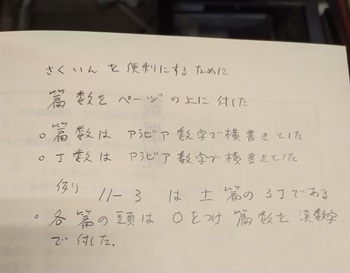 さくいんを便利にするために
篇数をページの上に付した
○ 篇数はアラビア数字で横書きとした
○ 丁数はアラビア数字で横書きとした
例 11-3 は 土篇の3丁である
○ 各篇の頭は○をつけ篇数を漢数字
で付した。